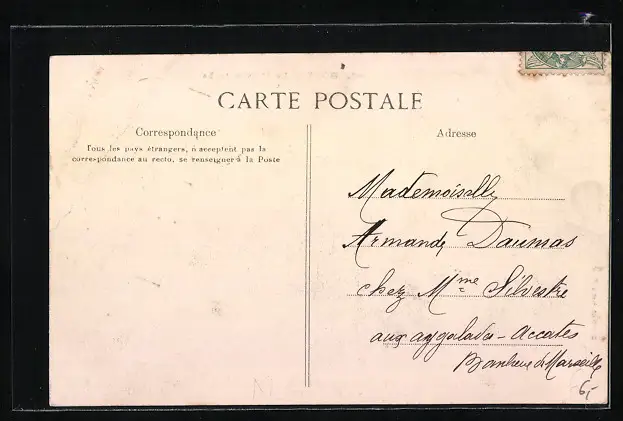 CARTE POSTALE
Correspondance
Tous les pays étrangers, n'acceptent pas la
correspondance au recto, se renseigner à la Poste
Adresse
Mademoiselle
Armande Daumas
chez Mme Silvestre
aux aygalades - Accates
Banlieue de Marseille
6,-